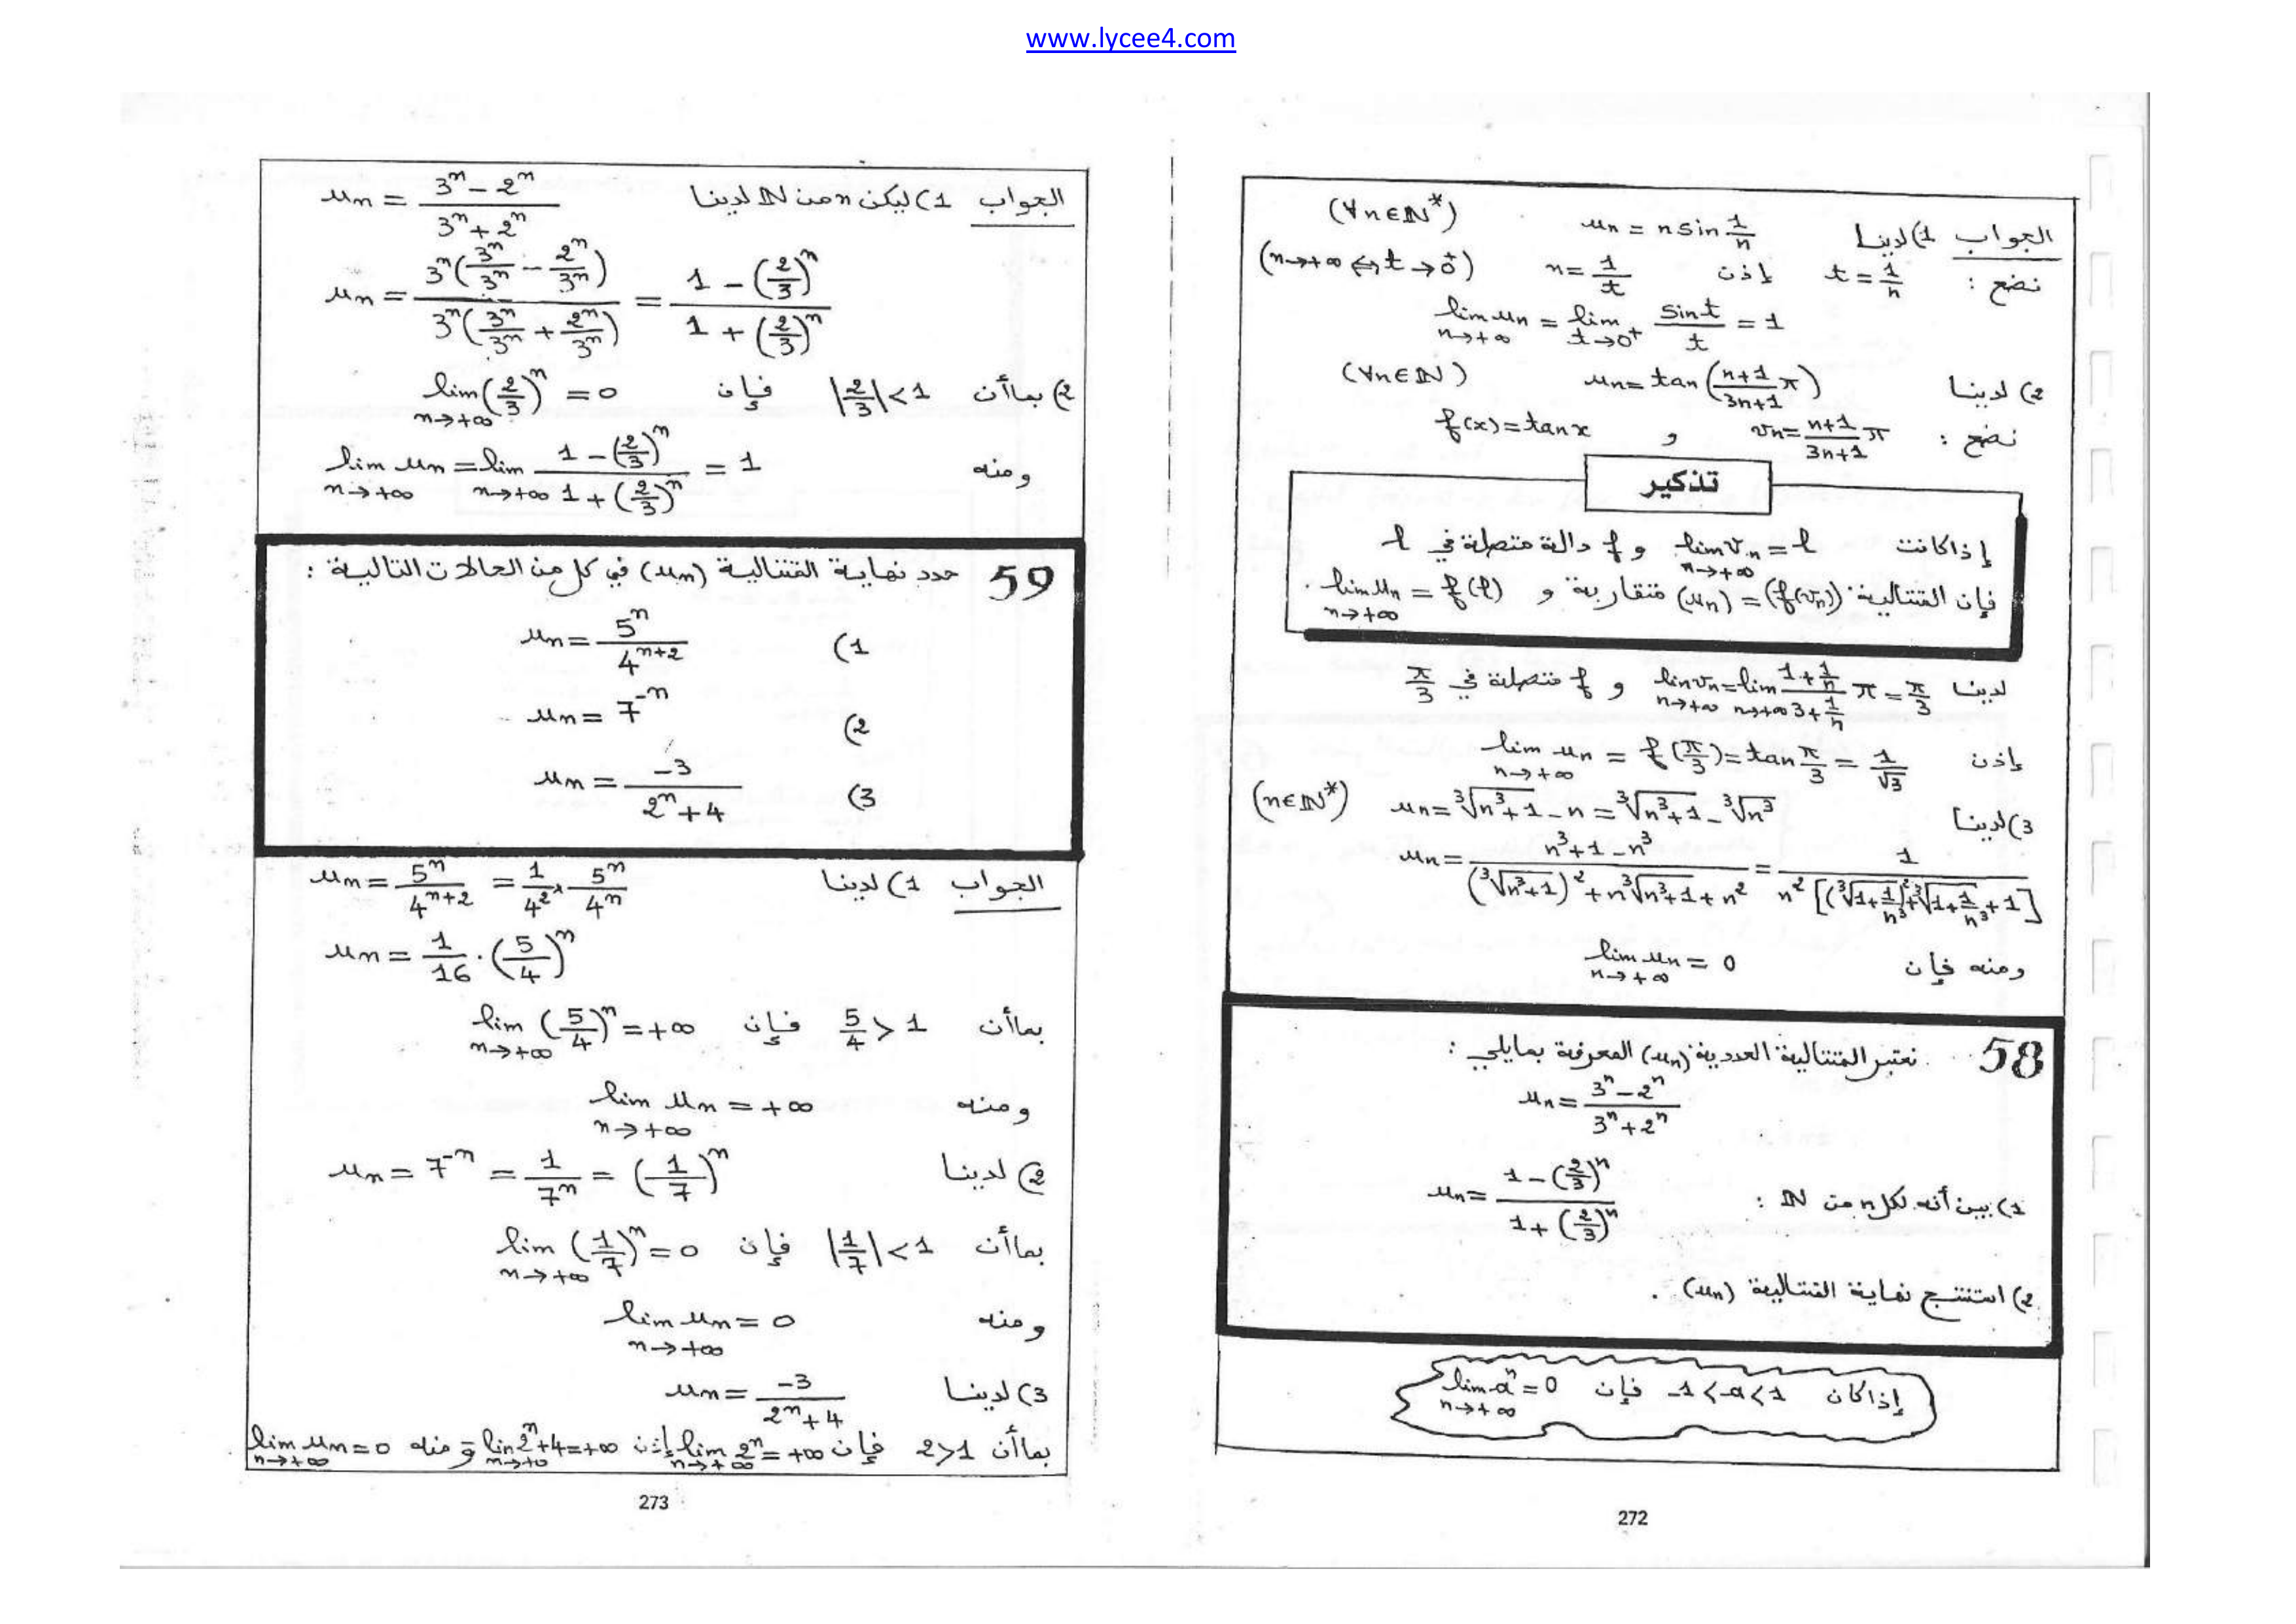 www.lycee4.com
الجواب 1) لدينا u_n = n sin 1/n (∀n∈ℕ*)
نضع : t = 1/n إذن n = 1/t (n→+∞ ⇔ t→0⁺)
lim_{n→+∞} u_n = lim_{t→0⁺} sin t / t = 1
2) لدينا u_n = tan((n+1)/(3n+1) π) (∀n∈ℕ)
نضع : v_n = (n+1)/(3n+1) π و f(x) = tan x
تذكير
إذا كانت lim_{n→+∞} v_n = ℓ و f دالة متصلة في ℓ
فإن المتتالية (u_n) = (f(v_n)) متقاربة و lim_{n→+∞} u_n = f(ℓ) .
لدينا lim_{n→+∞} v_n = lim_{n→+∞} (1+1/n)/(3+1/n) π = π/3 و f متصلة في π/3
إذن lim_{n→+∞} u_n = f(π/3) = tan π/3 = 1/√3
3) لدينا u_n = ∛(n³+1) - n = ∛(n³+1) - ∛n³ (n∈ℕ*)
u_n = (n³+1-n³)/((∛(n³+1))² + n∛(n³+1) + n²) = 1/(n²[(∛(1+1/n³))² + ∛(1+1/n³) + 1])
ومنه فإن lim_{n→+∞} u_n = 0
58 نعتبر المتتالية العددية (u_n) المعرفة بمايلي :
u_n = (3ⁿ - 2ⁿ)/(3ⁿ + 2ⁿ)
1) بين أنه لكل n من ℕ : u_n = (1 - (2/3)ⁿ)/(1 + (2/3)ⁿ)
2) استنتج نهاية المتتالية (u_n) .
إذا كان -1 < a < 1 فإن lim_{n→+∞} aⁿ = 0
272
الجواب 1) ليكن n من ℕ لدينا u_n = (3ⁿ - 2ⁿ)/(3ⁿ + 2ⁿ)
u_n = 3ⁿ(3ⁿ/3ⁿ - 2ⁿ/3ⁿ)/3ⁿ(3ⁿ/3ⁿ + 2ⁿ/3ⁿ) = (1 - (2/3)ⁿ)/(1 + (2/3)ⁿ)
2) بما أن |2/3| < 1 فإن lim_{n→+∞} (2/3)ⁿ = 0
ومنه lim_{n→+∞} u_n = lim_{n→+∞} (1 - (2/3)ⁿ)/(1 + (2/3)ⁿ) = 1
59 حدد نهاية المتتالية (u_n) في كل من الحالات التالية :
1) u_n = 5ⁿ/4ⁿ⁺²
2) u_n = 7⁻ⁿ
3) u_n = -3/(2ⁿ + 4)
الجواب 1) لدينا u_n = 5ⁿ/4ⁿ⁺² = 1/4² × 5ⁿ/4ⁿ
u_n = 1/16 . (5/4)ⁿ
بما أن 5/4 > 1 فإن lim_{n→+∞} (5/4)ⁿ = +∞
ومنه lim_{n→+∞} u_n = +∞
2) لدينا u_n = 7⁻ⁿ = 1/7ⁿ = (1/7)ⁿ
بما أن |1/7| < 1 فإن lim_{n→+∞} (1/7)ⁿ = 0
ومنه lim_{n→+∞} u_n = 0
3) لدينا u_n = -3/(2ⁿ + 4)
بما أن 2>1 فإن lim_{n→+∞} 2ⁿ = +∞ إذن lim_{n→+∞} 2ⁿ+4 = +∞ ومنه lim_{n→+∞} u_n = 0
273